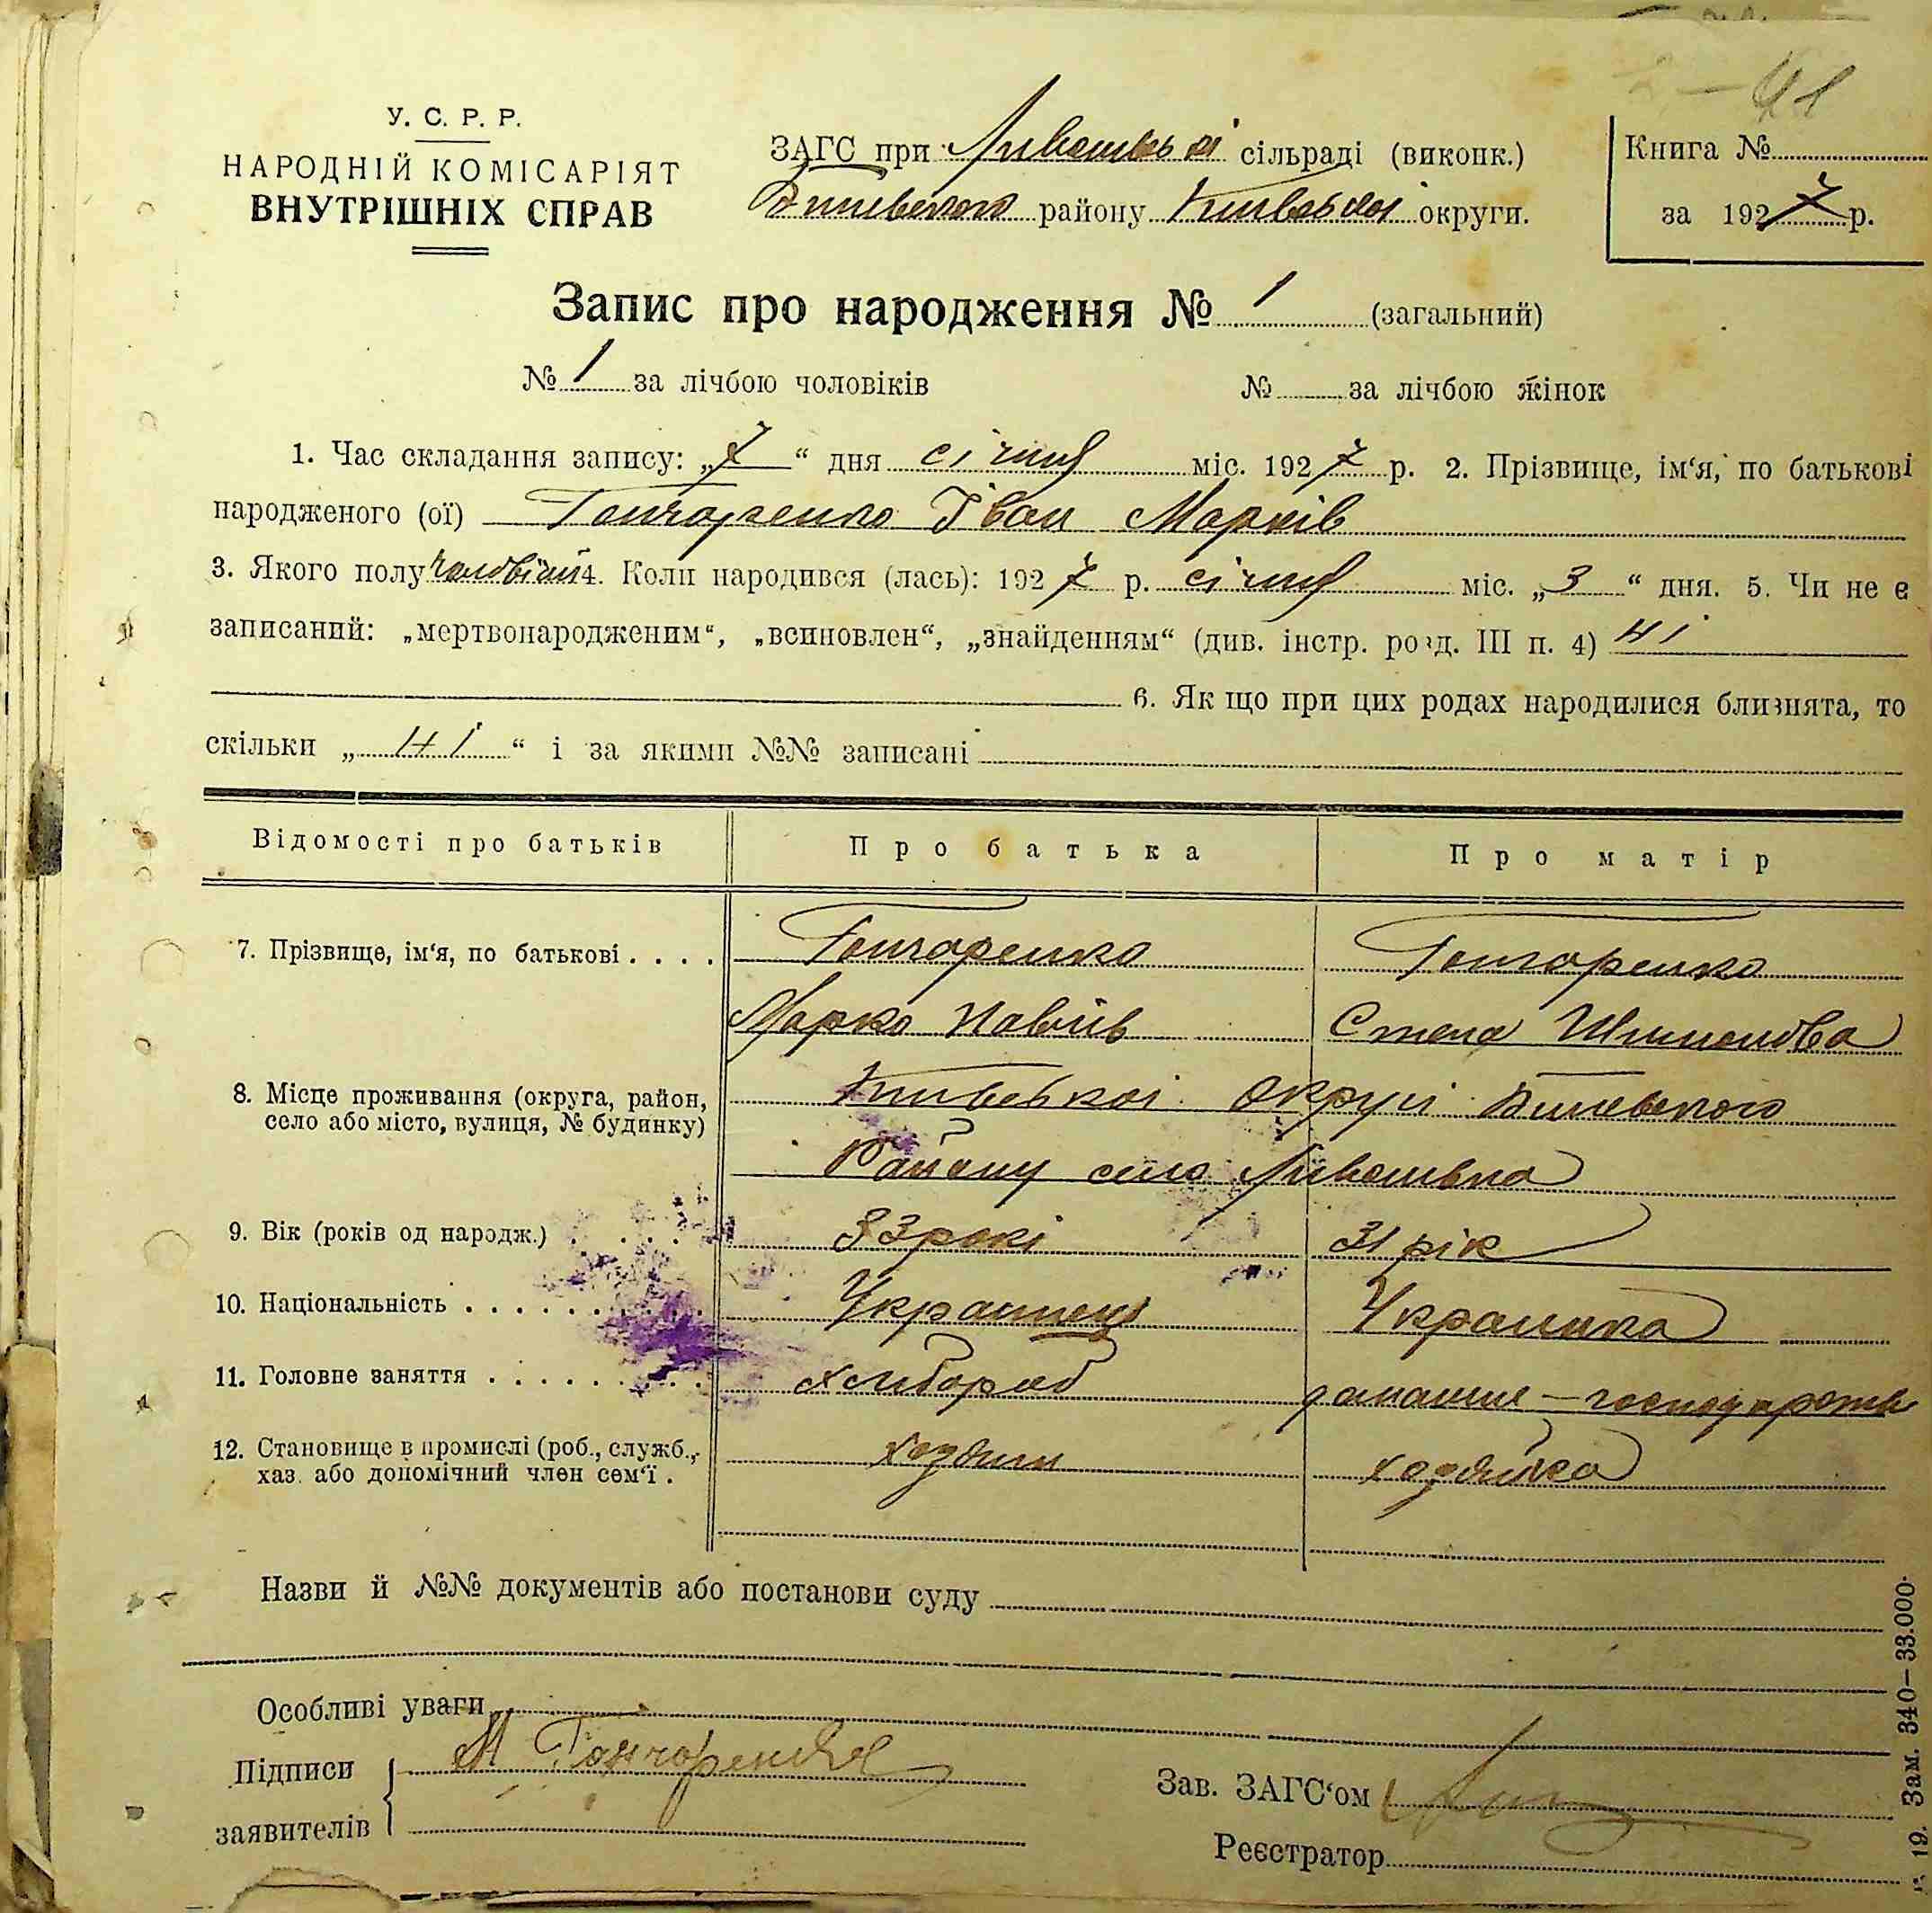 41
У. С. Р. Р.
НАРОДНІЙ КОМІСАРІЯТ
ВНУТРІШНІХ СПРАВ
ЗАГС при сільраді (виконк.)
району Київської округи.
Книга №
за 1927 р.
Запис про народження № 1 (загальний)
№ 1 за лічбою чоловіків № за лічбою жінок
1. Час складання запису: „7“ дня січня міс. 1927 р. 2. Прізвище, ім‘я, по батькові
народженого (ої) Гончаренко Іван Марків
3. Якого полу чоловічий 4. Коли народився (лась): 1927 р. січня міс. „3“ дня. 5. Чи не є
записаний: „мертвонародженим“, „всиновлен“, „знайденням“ (див. інстр. розд. III п. 4) Ні
6. Як що при цих родах народилися близнята, то
скільки „Ні“ і за якими №№ записані
Відомості про батьків Про батька Про матір
7. Прізвище, ім‘я, по батькові . . . . Гончаренко Гончаренко
Марко Павлів
8. Місце проживання (округа, район, село або місто, вулиця, № будинку) Київської округи
Району село
9. Вік (років од народж.) 33 рокі 31 рік
10. Національність Українець Українка
11. Головне заняття хлібороб домашнє – господарств
12. Становище в промислі (роб., служб., хаз. або допомічний член сем‘ї . хозяїн хозяйка
Назви й №№ документів або постанови суду
Особливі уваги
Підписи М Гончаренко
заявителів
Зав. ЗАГС‘ом
Реєстратор
19. Зам. 340—33.000.